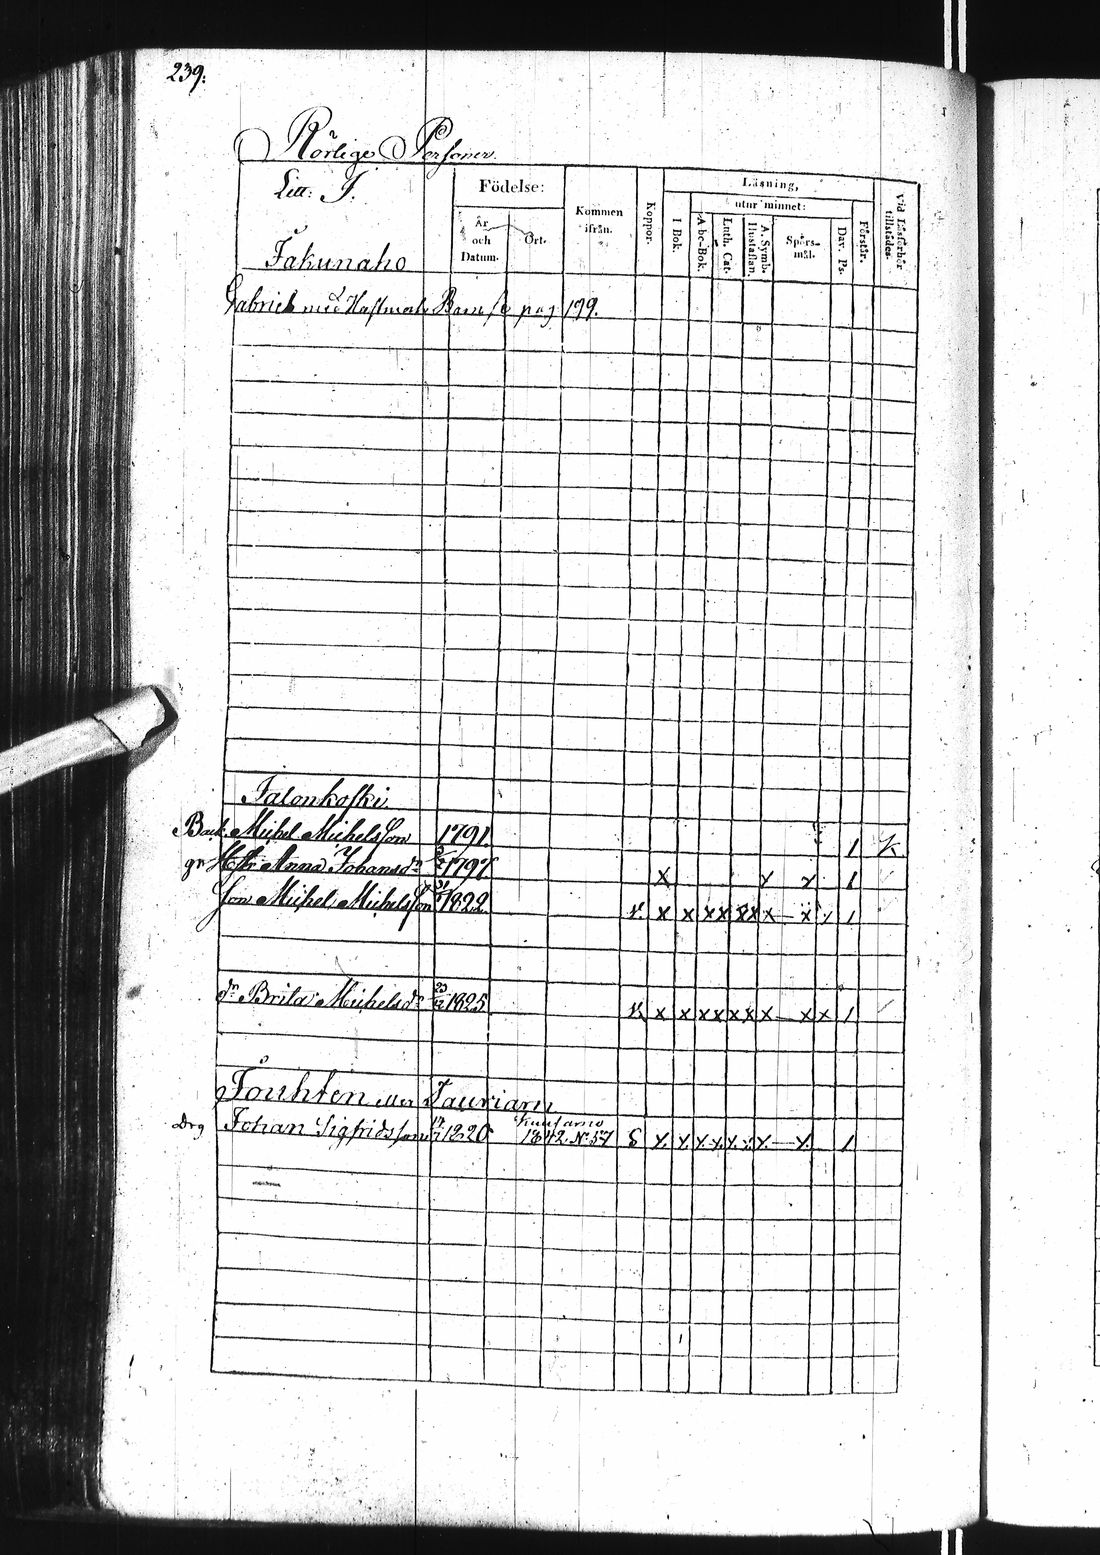 239.
Rörlige Personer.
Litt: J.
Födelse:
År och Datum.
Ort.
Kommen ifrån.
Koppor.
Läsning,
utur minnet:
I Bok.
A be-Bok.
Luth. Cat.
A. Symb. Hustaflan.
Spörsmål.
Dav. Ps.
Förstår.
Vid Läsförhör tillstädes.
Jakunaho
Gabriel med Hustru och Barn se pag 199.
Jalonkoski
Back. Michel Michelsson 1791. 1
Hstr Anna Johansdr 1797 x x x 1
Son Michel Michelsson 1822 v. x x x x x x x x x 1
dr Brita Michelsdr 23/12 1825 v. x x x x x x x x x 1
Jouhten Jauriarn
Drg Johan Sigfridsson 1820 1842. No 57 x x x x x x x x 1